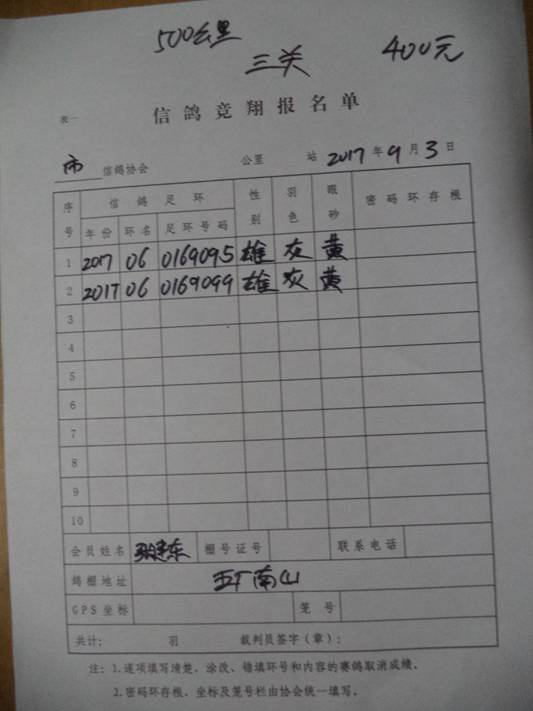 500公里
三关 400元
表一
信鸽竞翔报名单
市信鸽协会 公里 站 2017年9月3日
序号 信鸽足环 性别 羽色 眼砂 密码环存根
年份 环名 足环号码
1 2017 06 0169095 雄 灰 黄
2 2017 06 0169099 雄 灰 黄
3
4
5
6
7
8
9
10
会员姓名 建东 棚号证号 联系电话
鸽棚地址 南山
GPS坐标 笼号
共计: 羽 裁判员签字(章):
注: 1.逐项填写清楚、涂改、错填环号和内容的赛鸽取消成绩。
2.密码环存根、坐标及笼号栏由协会统一填写。